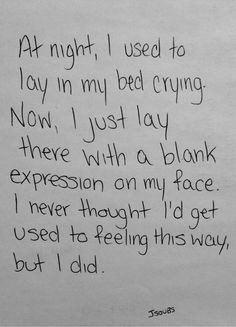 At night, I used to
lay in my bed crying.
Now, I just lay
there with a blank
expression on my face.
I never thought I'd get
used to feeling this way,
but I did.
Jsouss